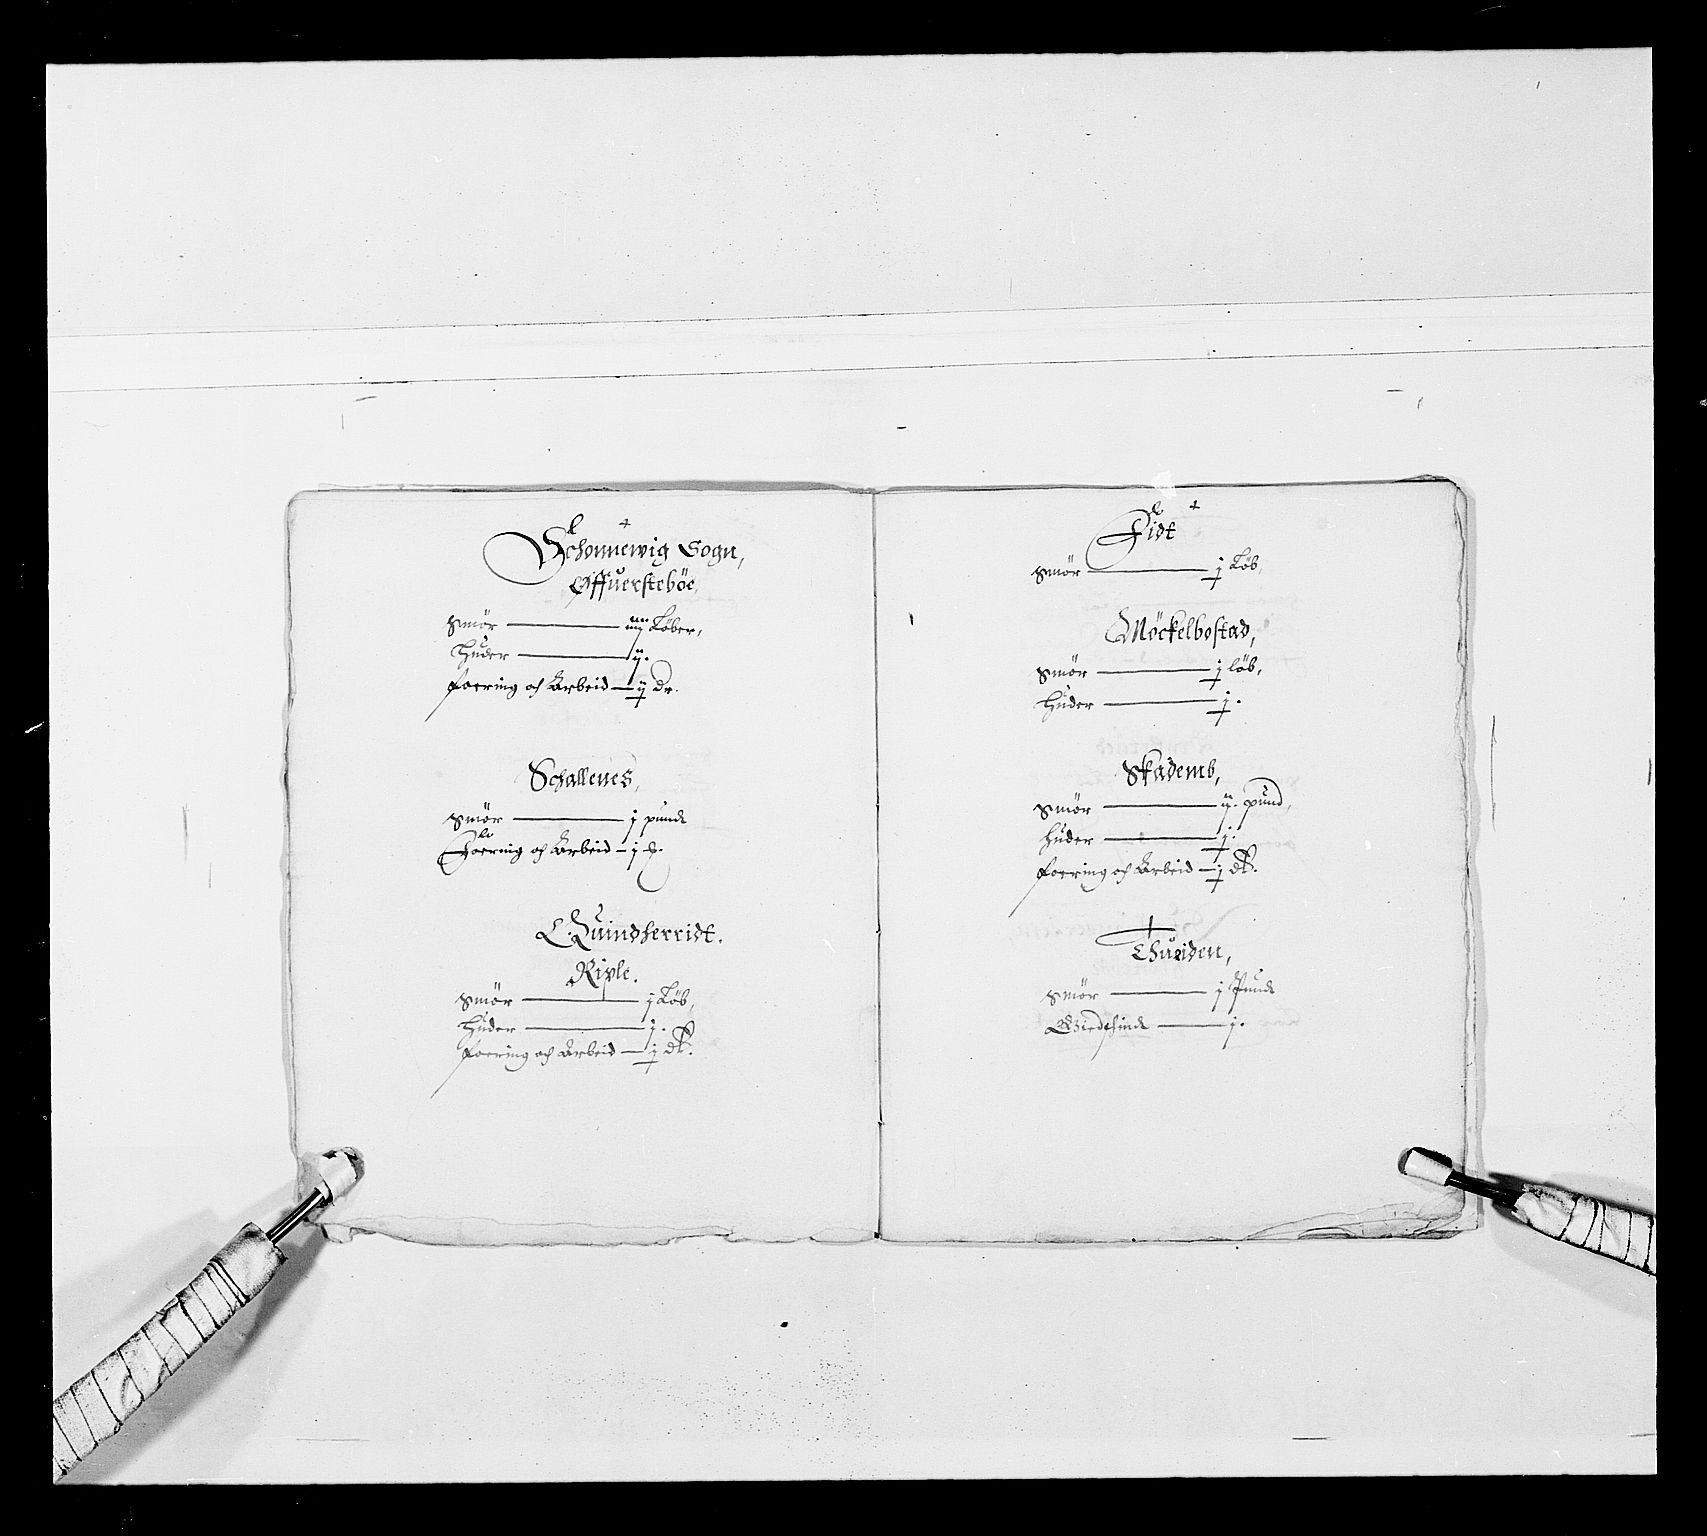 Schonnewig Sogn,
Øffuersteböe,
Smör — iiij Löber,
Huder — ij.
foering och Arbeid — ij dr.
Schallenes,
Smör — j pund
Foering och Arbeid — j
Quindherridt.
Riple.
Smör — j Löb,
Huder — j.
foering och Arbeid — j dr.
Fidt
Smör — j Löb,
Möckelbostad,
Smör — j löb,
Huder — j.
Skademb,
Smör — ij. pund,
huder — j.
foering och Arbeid — j dr.
Thueiden,
Smör — j Pund
Giedskind — j.